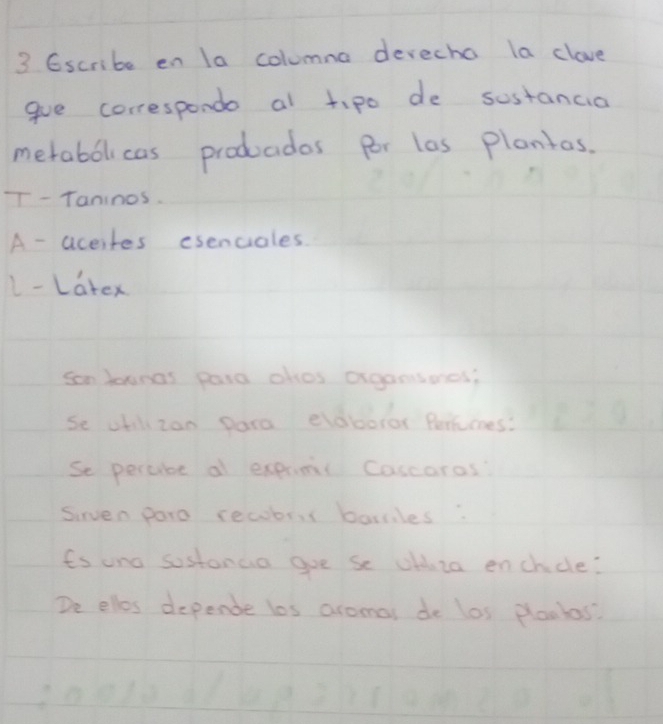 3 Escribe en la columna derecha la clave
que corresponda al tipo de sustancia
metabólicas producidas por las plantas.
T - Taninos.
A - aceites esenciales.
L - Látex
Son toxinas para otros organismos:
Se utilizan para elaborar Perfumes:
Se percibe al exprimir cascaras:
Sirven para recubrir barriles:
Es una sustancia que se utiliza en chicle:
De ellos depende los aromas de las plantas: